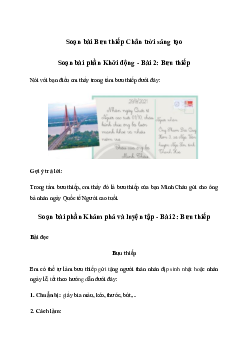 Soạn bài Bưu thiếp Chân trời sáng tạo
Soạn bài phần Khởi động - Bài 2: Bưu thiếp
Nói với bạn điều em thấy trong tấm bưu thiếp dưới đây:
Gợi ý trả lời:
Trong tấm bưu thiếp, em thấy đó là bưu thiếp của bạn Minh Châu gửi cho ông
bà nhân ngày Quốc tế Người cao tuổi.
Soạn bài phần Khám phá và luyện tập - Bài 2: Bưu thiếp
Bài đọc
Bưu thiếp
Em có thể tự làm bưu thiếp gửi tặng người thân nhân dịp sinh nhật hoặc nhân
ngày lễ tết theo hướng dẫn dưới đây:
1. Chuẩn bị: giấy bìa màu, kéo, thước, bút,...
2. Cách làm: